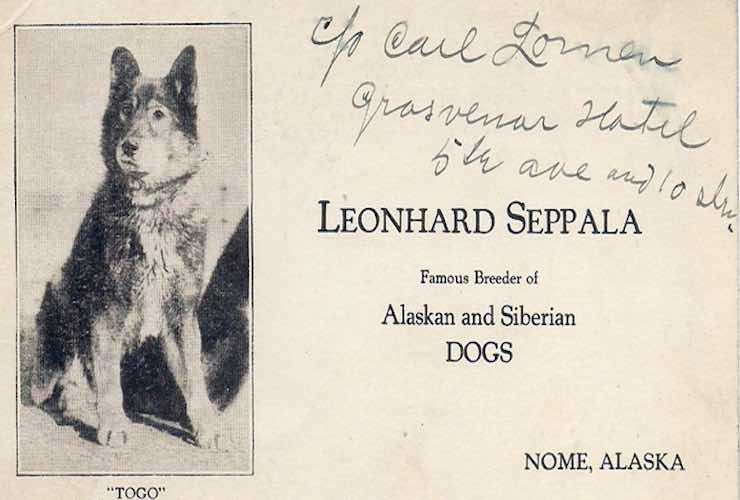 c/o Carl Lomen
Grosvenor Hotel
5th ave and 10 str.
LEONHARD SEPPALA
Famous Breeder of
Alaskan and Siberian
DOGS
NOME, ALASKA
"TOGO"